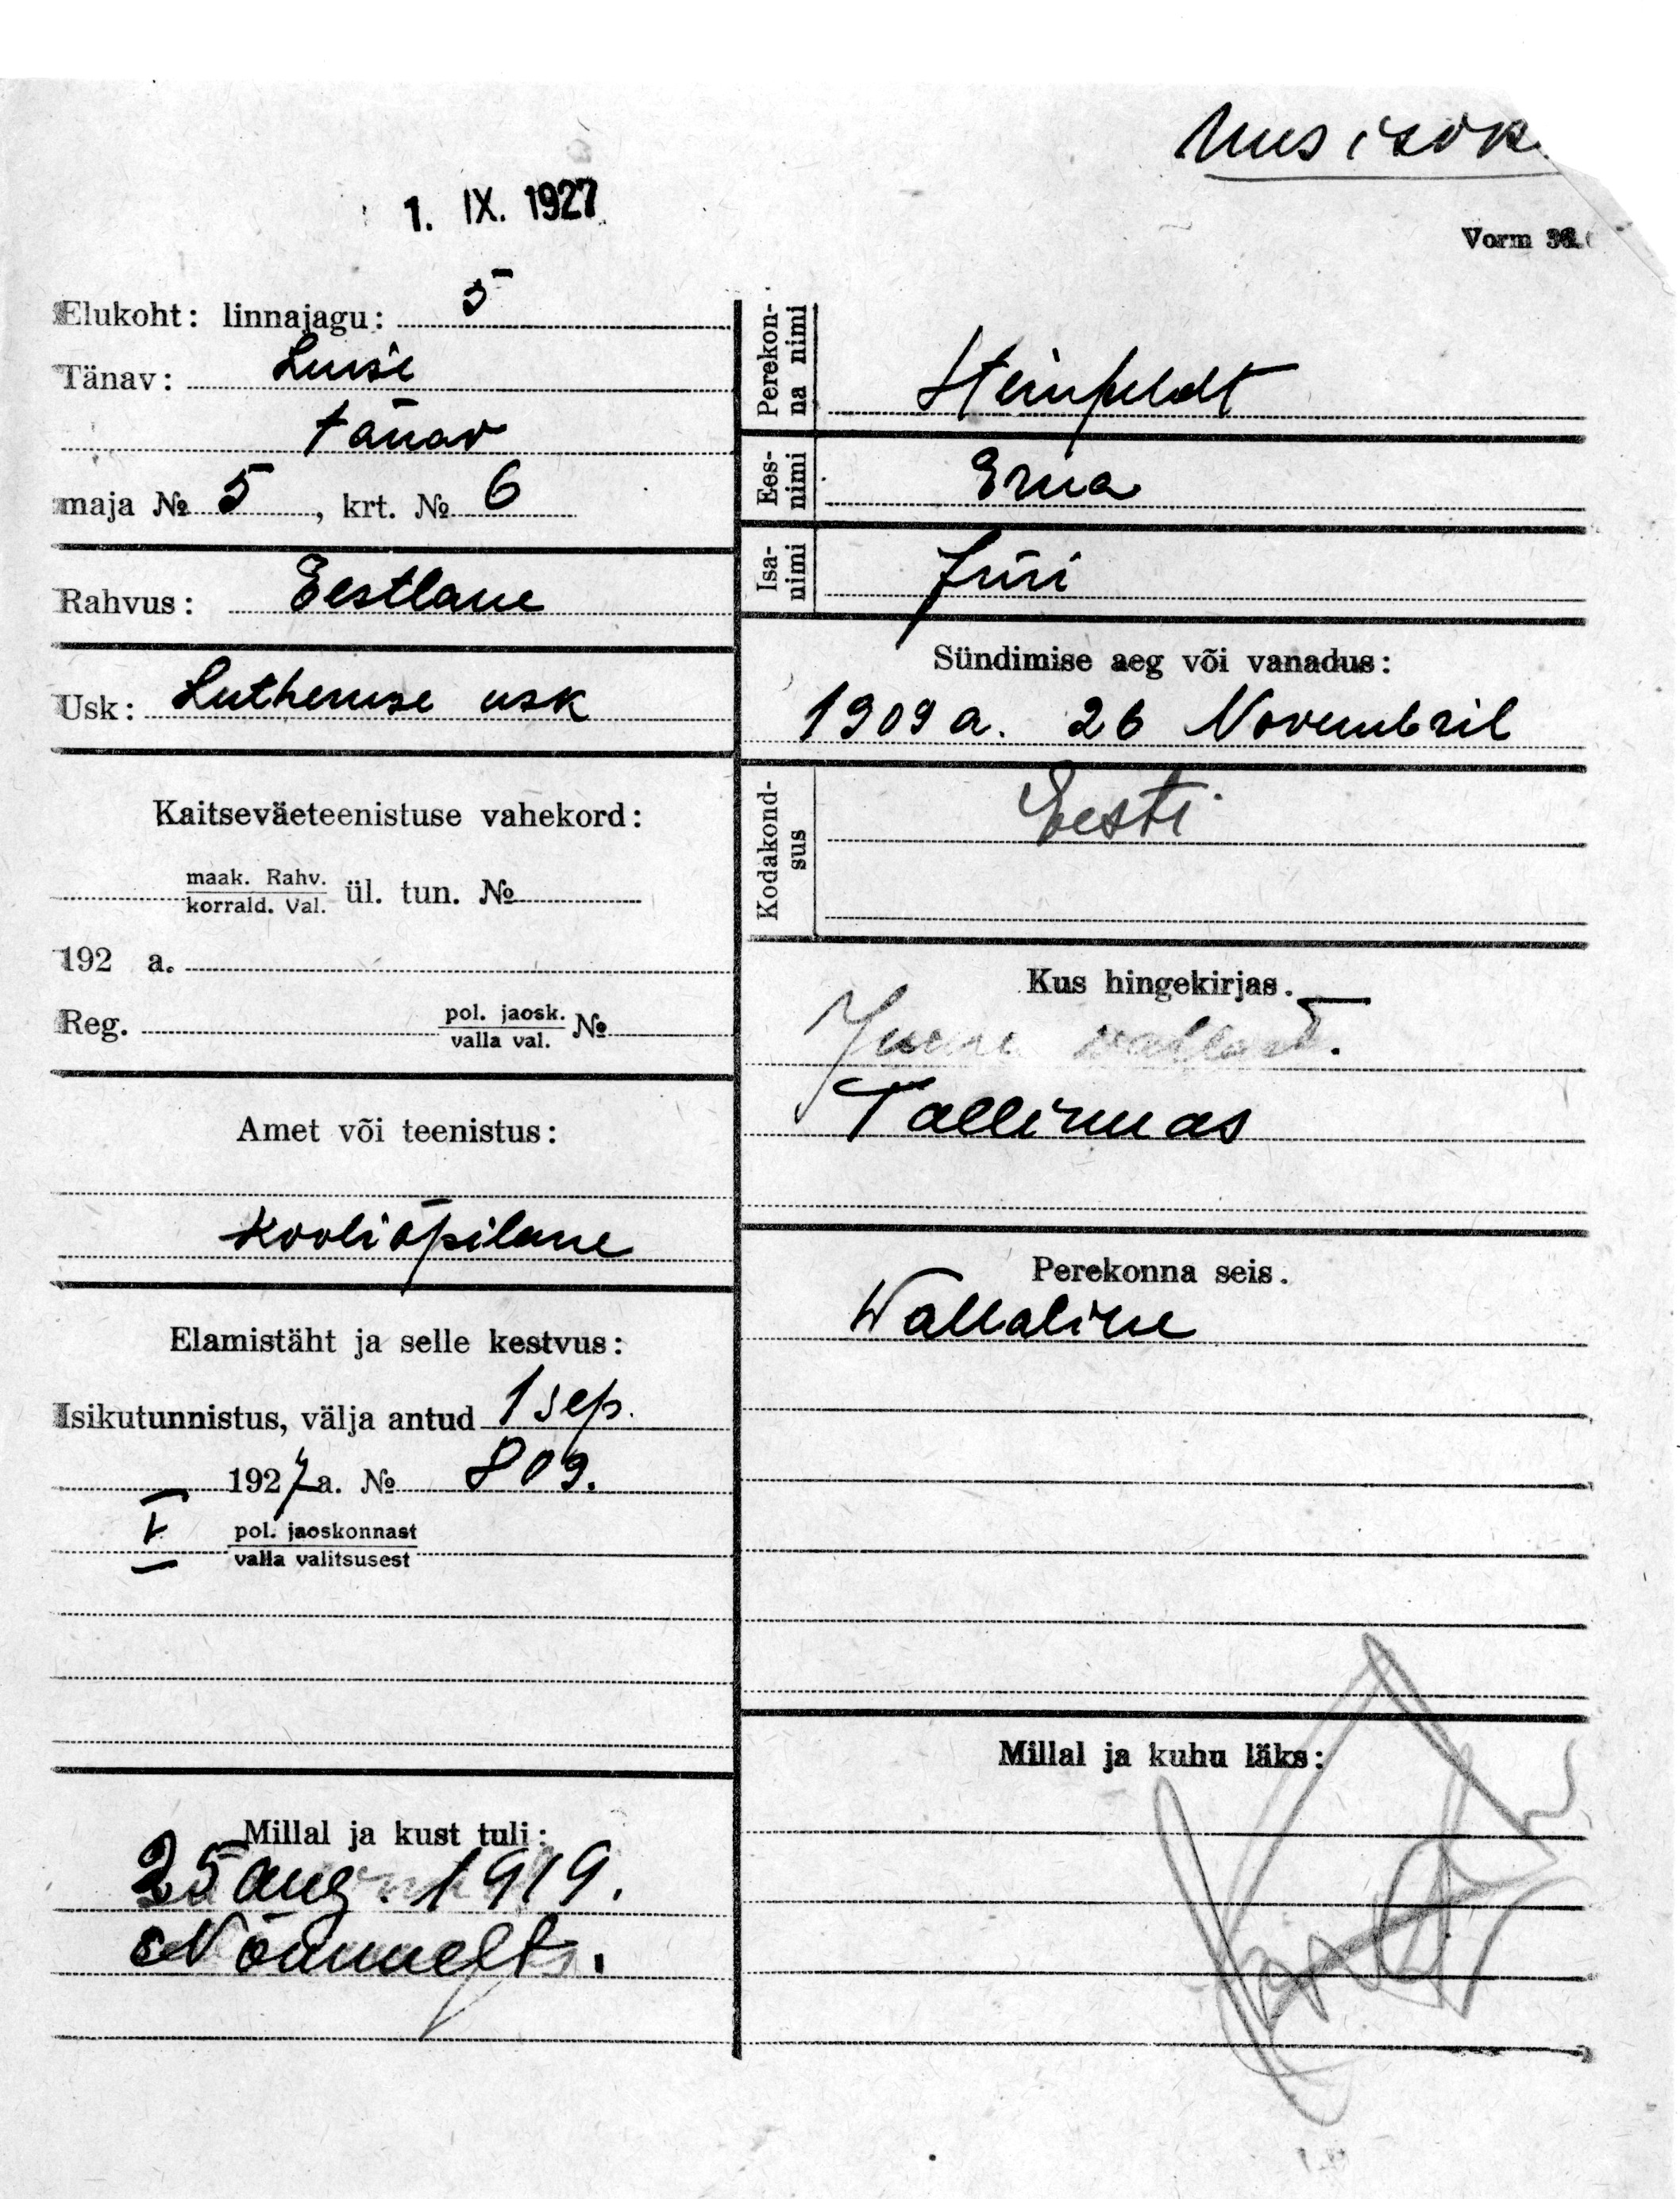 Uus isik
1. IX. 1927
Vorm
Elukoht: linnajagu: 5
Tänav: Luise
tänav
maja № 5, krt. № 6
Rahvus: Eestlane
Usk: Lutheruse usk
Kaitseväeteenistuse vahekord:
maak. Rahv.
korrald. Val. ül. tun. №
192 a.
Reg. pol. jaosk.
valla val. №
Amet või teenistus:
Kooliõpilane
Elamistäht ja selle kestvus:
Isikutunnistus, välja antud 1 sep.
1927 a. № 809.
I pol. jaoskonnast
valla valitsusest
Millal ja kust tuli:
25 aug. 1919.
Nõmmelt.
Perekonna nimi
Steinfeldt
Eesnimi
Erna
Isanimi
Jüri
Sündimise aeg või vanadus:
1909 a. 26 Novembril
Kodakondsus
Eesti
Kus hingekirjas.
Tallinnas
Perekonna seis.
Wallaline
Millal ja kuhu läks: